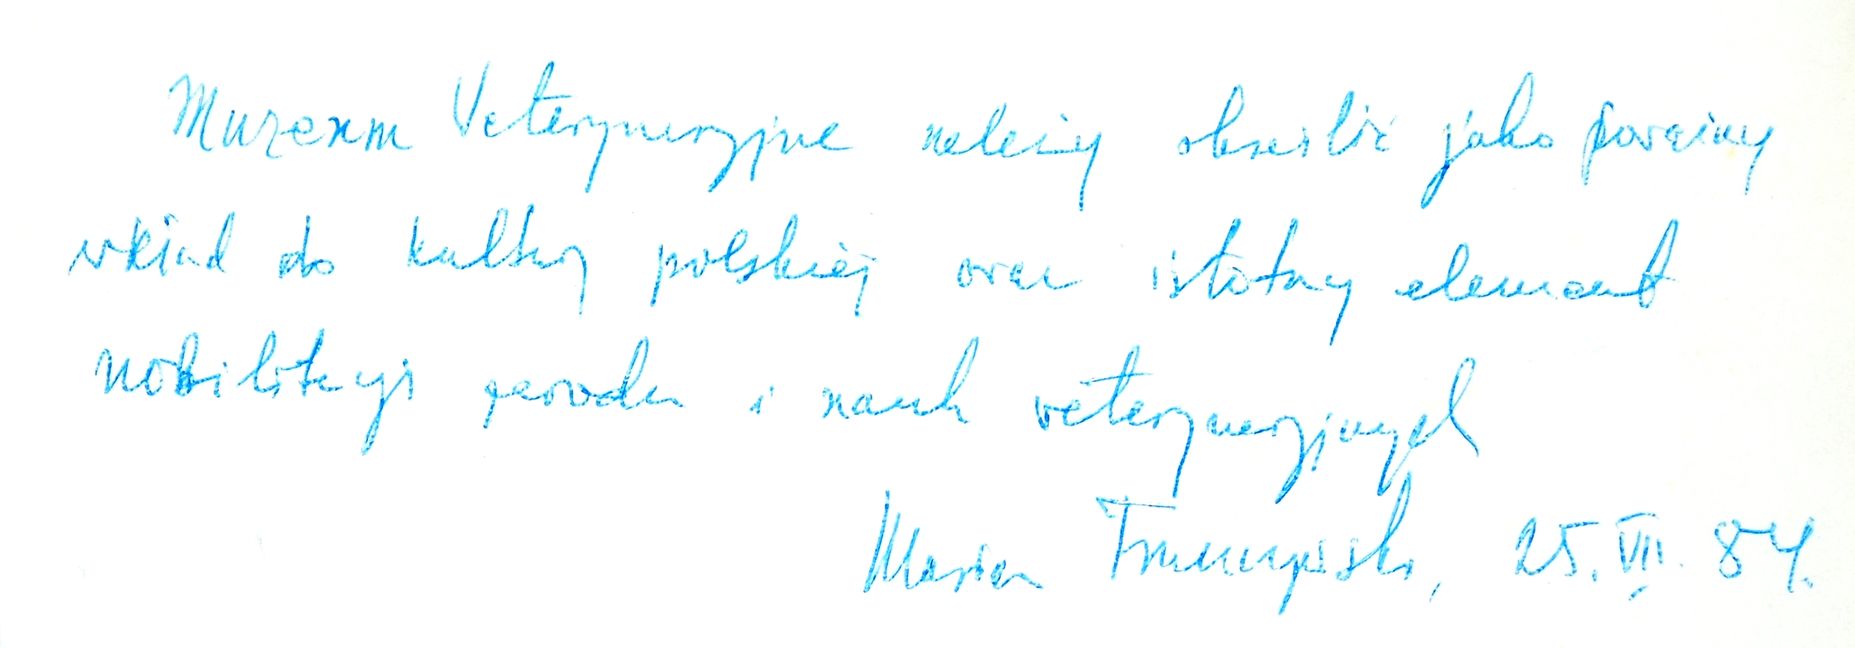 Muzeum Weterynaryjne należy określić jako poważny
wkład do kultury polskiej oraz istotny element
nobilitacji zawodu i nauk weterynaryjnych
Marian 25.VII.84.